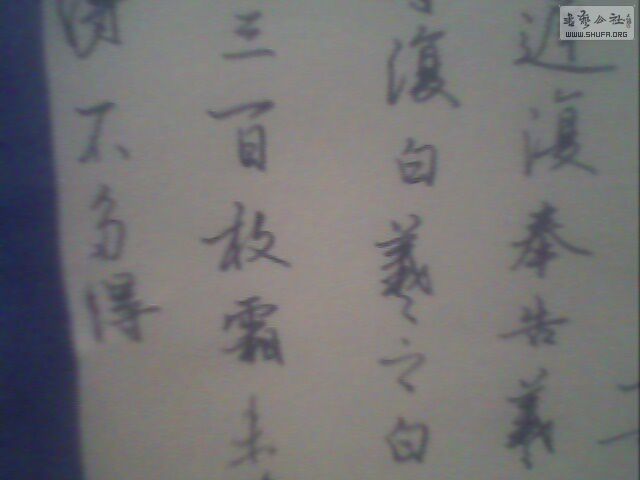 近復奉告羲
復白羲之白
三百枚霜未
不多得
WWW.SHUFA.ORG